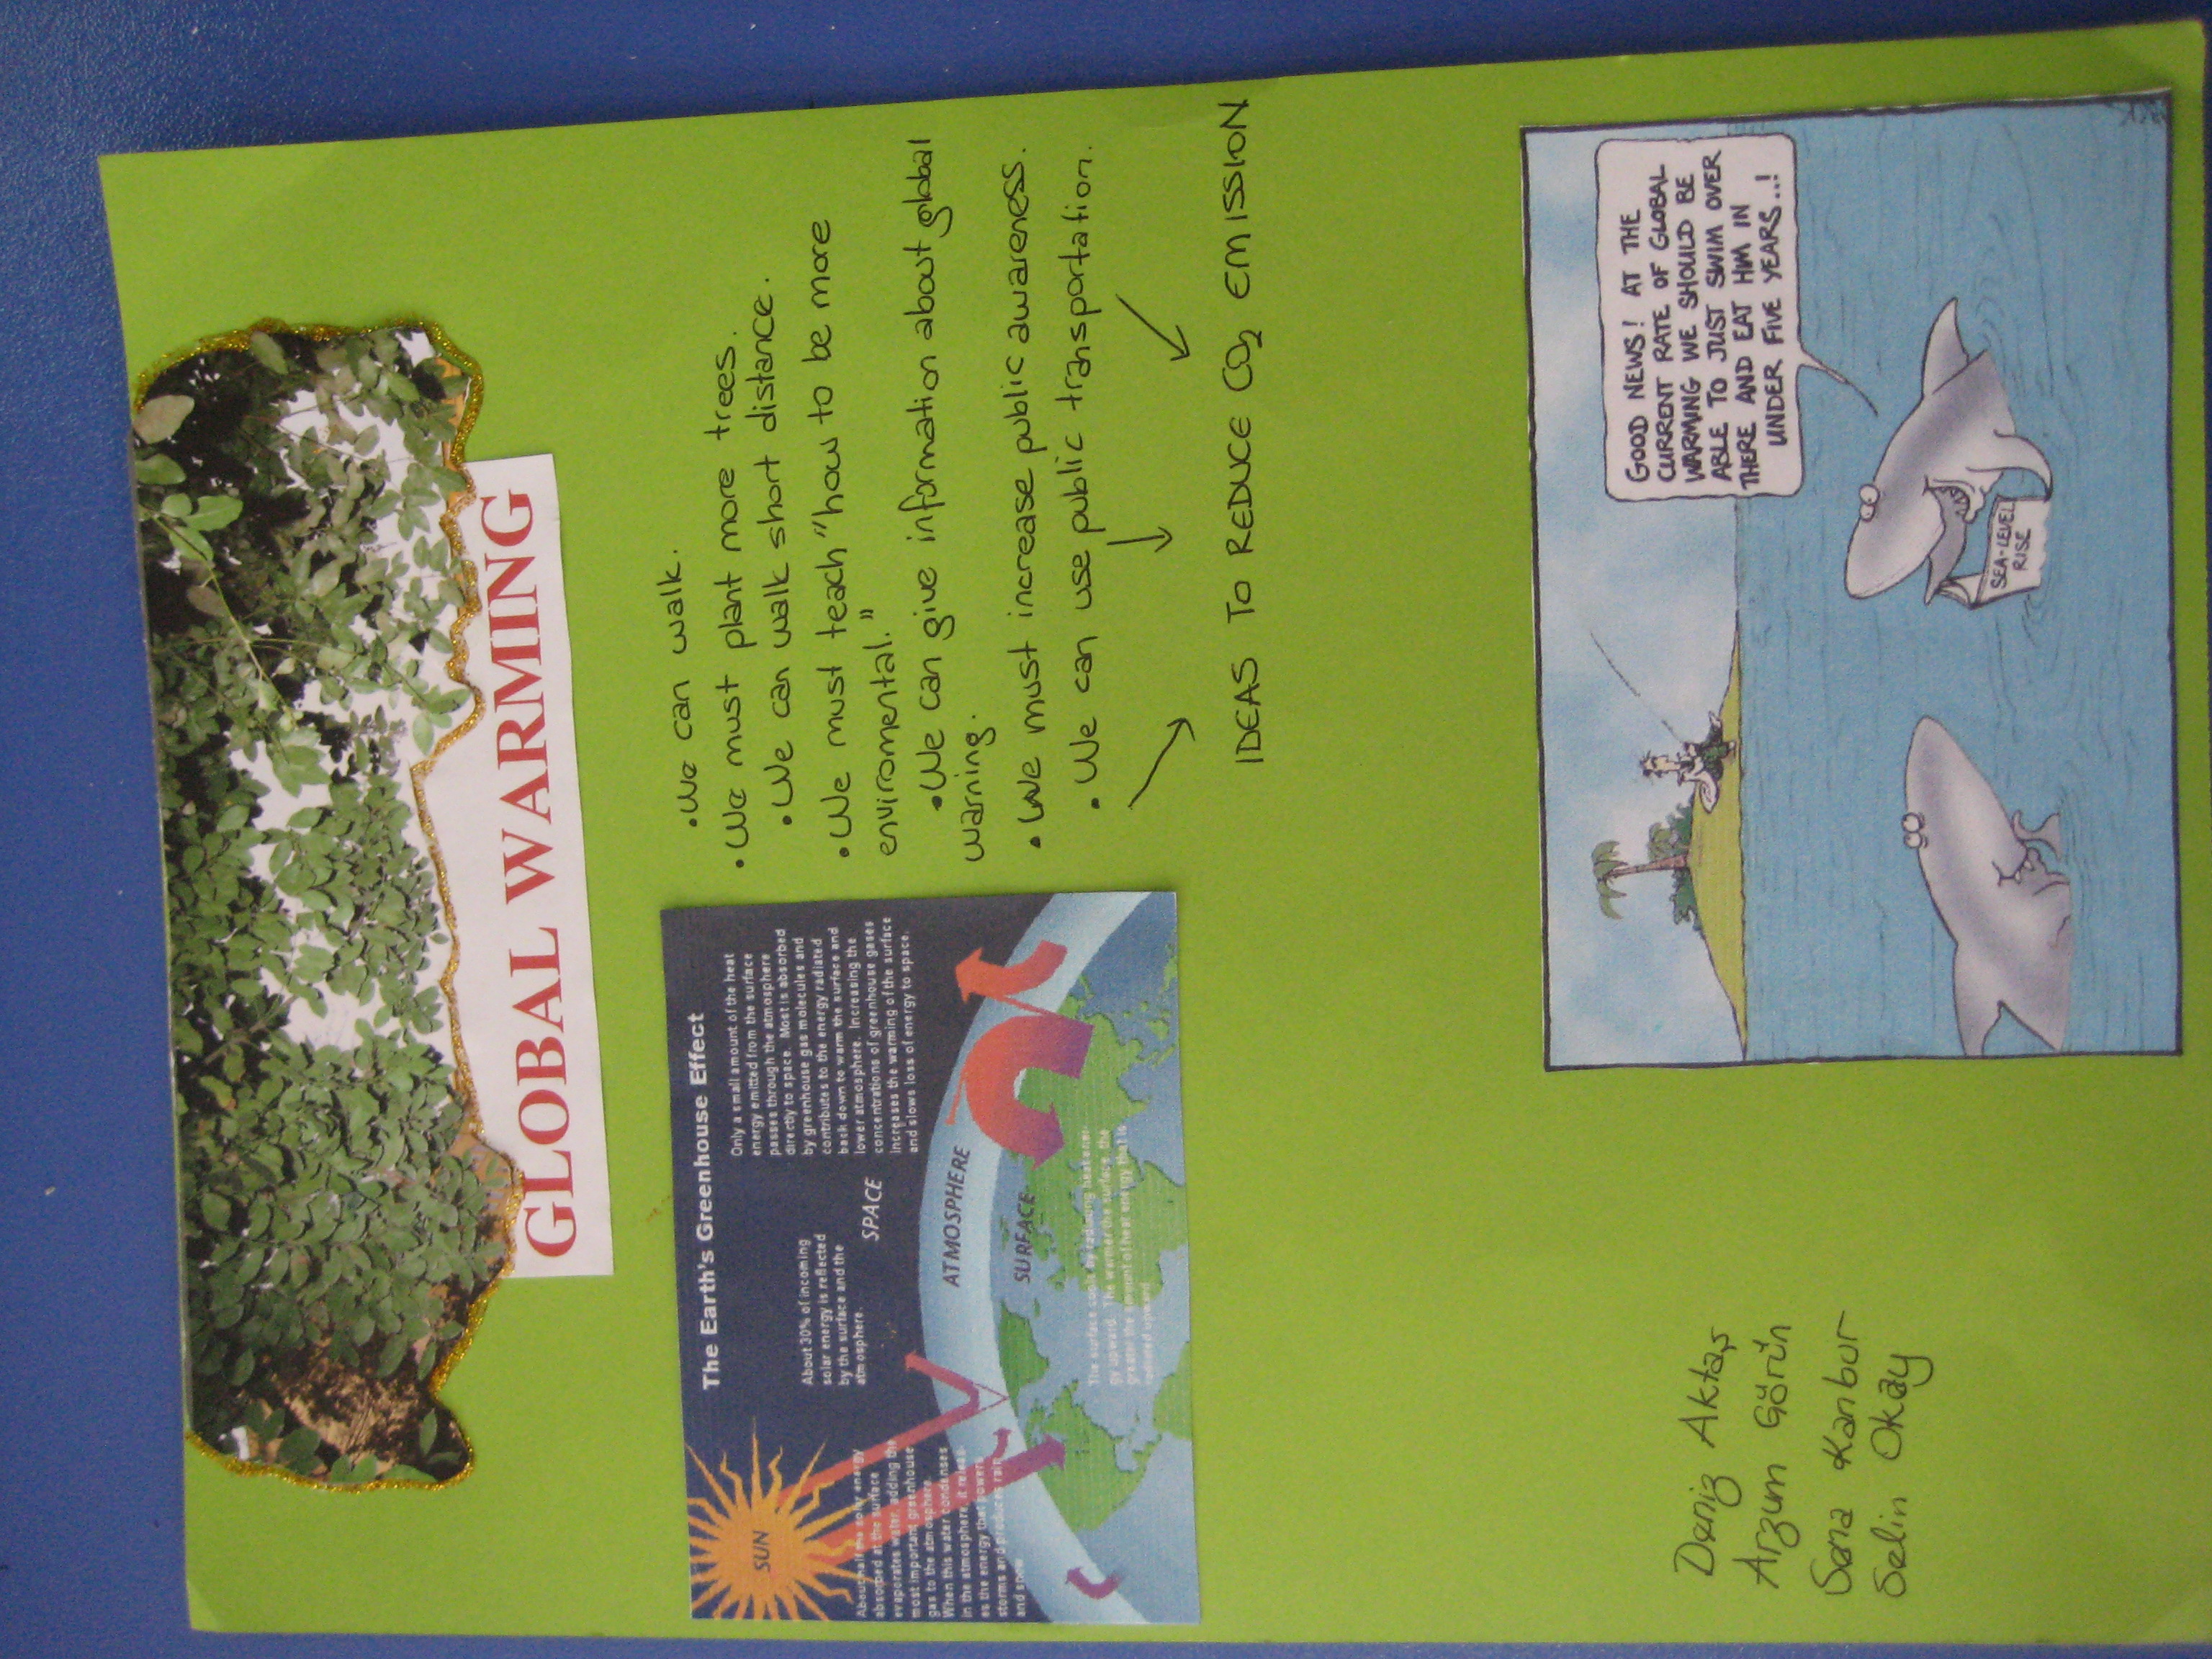 GLOBAL WARMING
The Earth's Greenhouse Effect
SUN
About 30% of incoming
solar energy is reflected
by the surface and the
atmosphere.
SPACE
Only a small amount of the heat
energy emitted from the surface
passes through the atmosphere
directly to space. Most is absorbed
by greenhouse gas molecules and
contributes to the energy radiated
back down to warm the surface and
lower atmosphere. Increasing the
concentrations of greenhouse gases
increases the warming of the surface
and slows loss of energy to space.
About half the solar energy
absorbed at the surface
evaporates water, adding the
most important greenhouse
gas to the atmosphere.
When this water condenses
in the atmosphere, it releas-
es the energy that powers
storms and produces rain
and snow
ATMOSPHERE
SURFACE
The surface cools by radiating heat ener-
gy upward. The warmer the surface, the
greater the amount of heat energy that is
radiated upward
• We can walk.
• We must plant more trees.
• We can walk short distance.
• We must teach "how to be more
enviromental."
• We can give information about global
warning.
• We must increase public awareness.
• We can use public transportation.
IDEAS TO REDUCE CO₂ EMISSION
GOOD NEWS! AT THE
CURRENT RATE OF GLOBAL
WARMING WE SHOULD BE
ABLE TO JUST SWIM OVER
THERE AND EAT HIM IN
UNDER FIVE YEARS...!
SEA-LEVEL
RISE
Deniz Aktaş
Arzum Görün
Sena Kanbur
Selin Okay